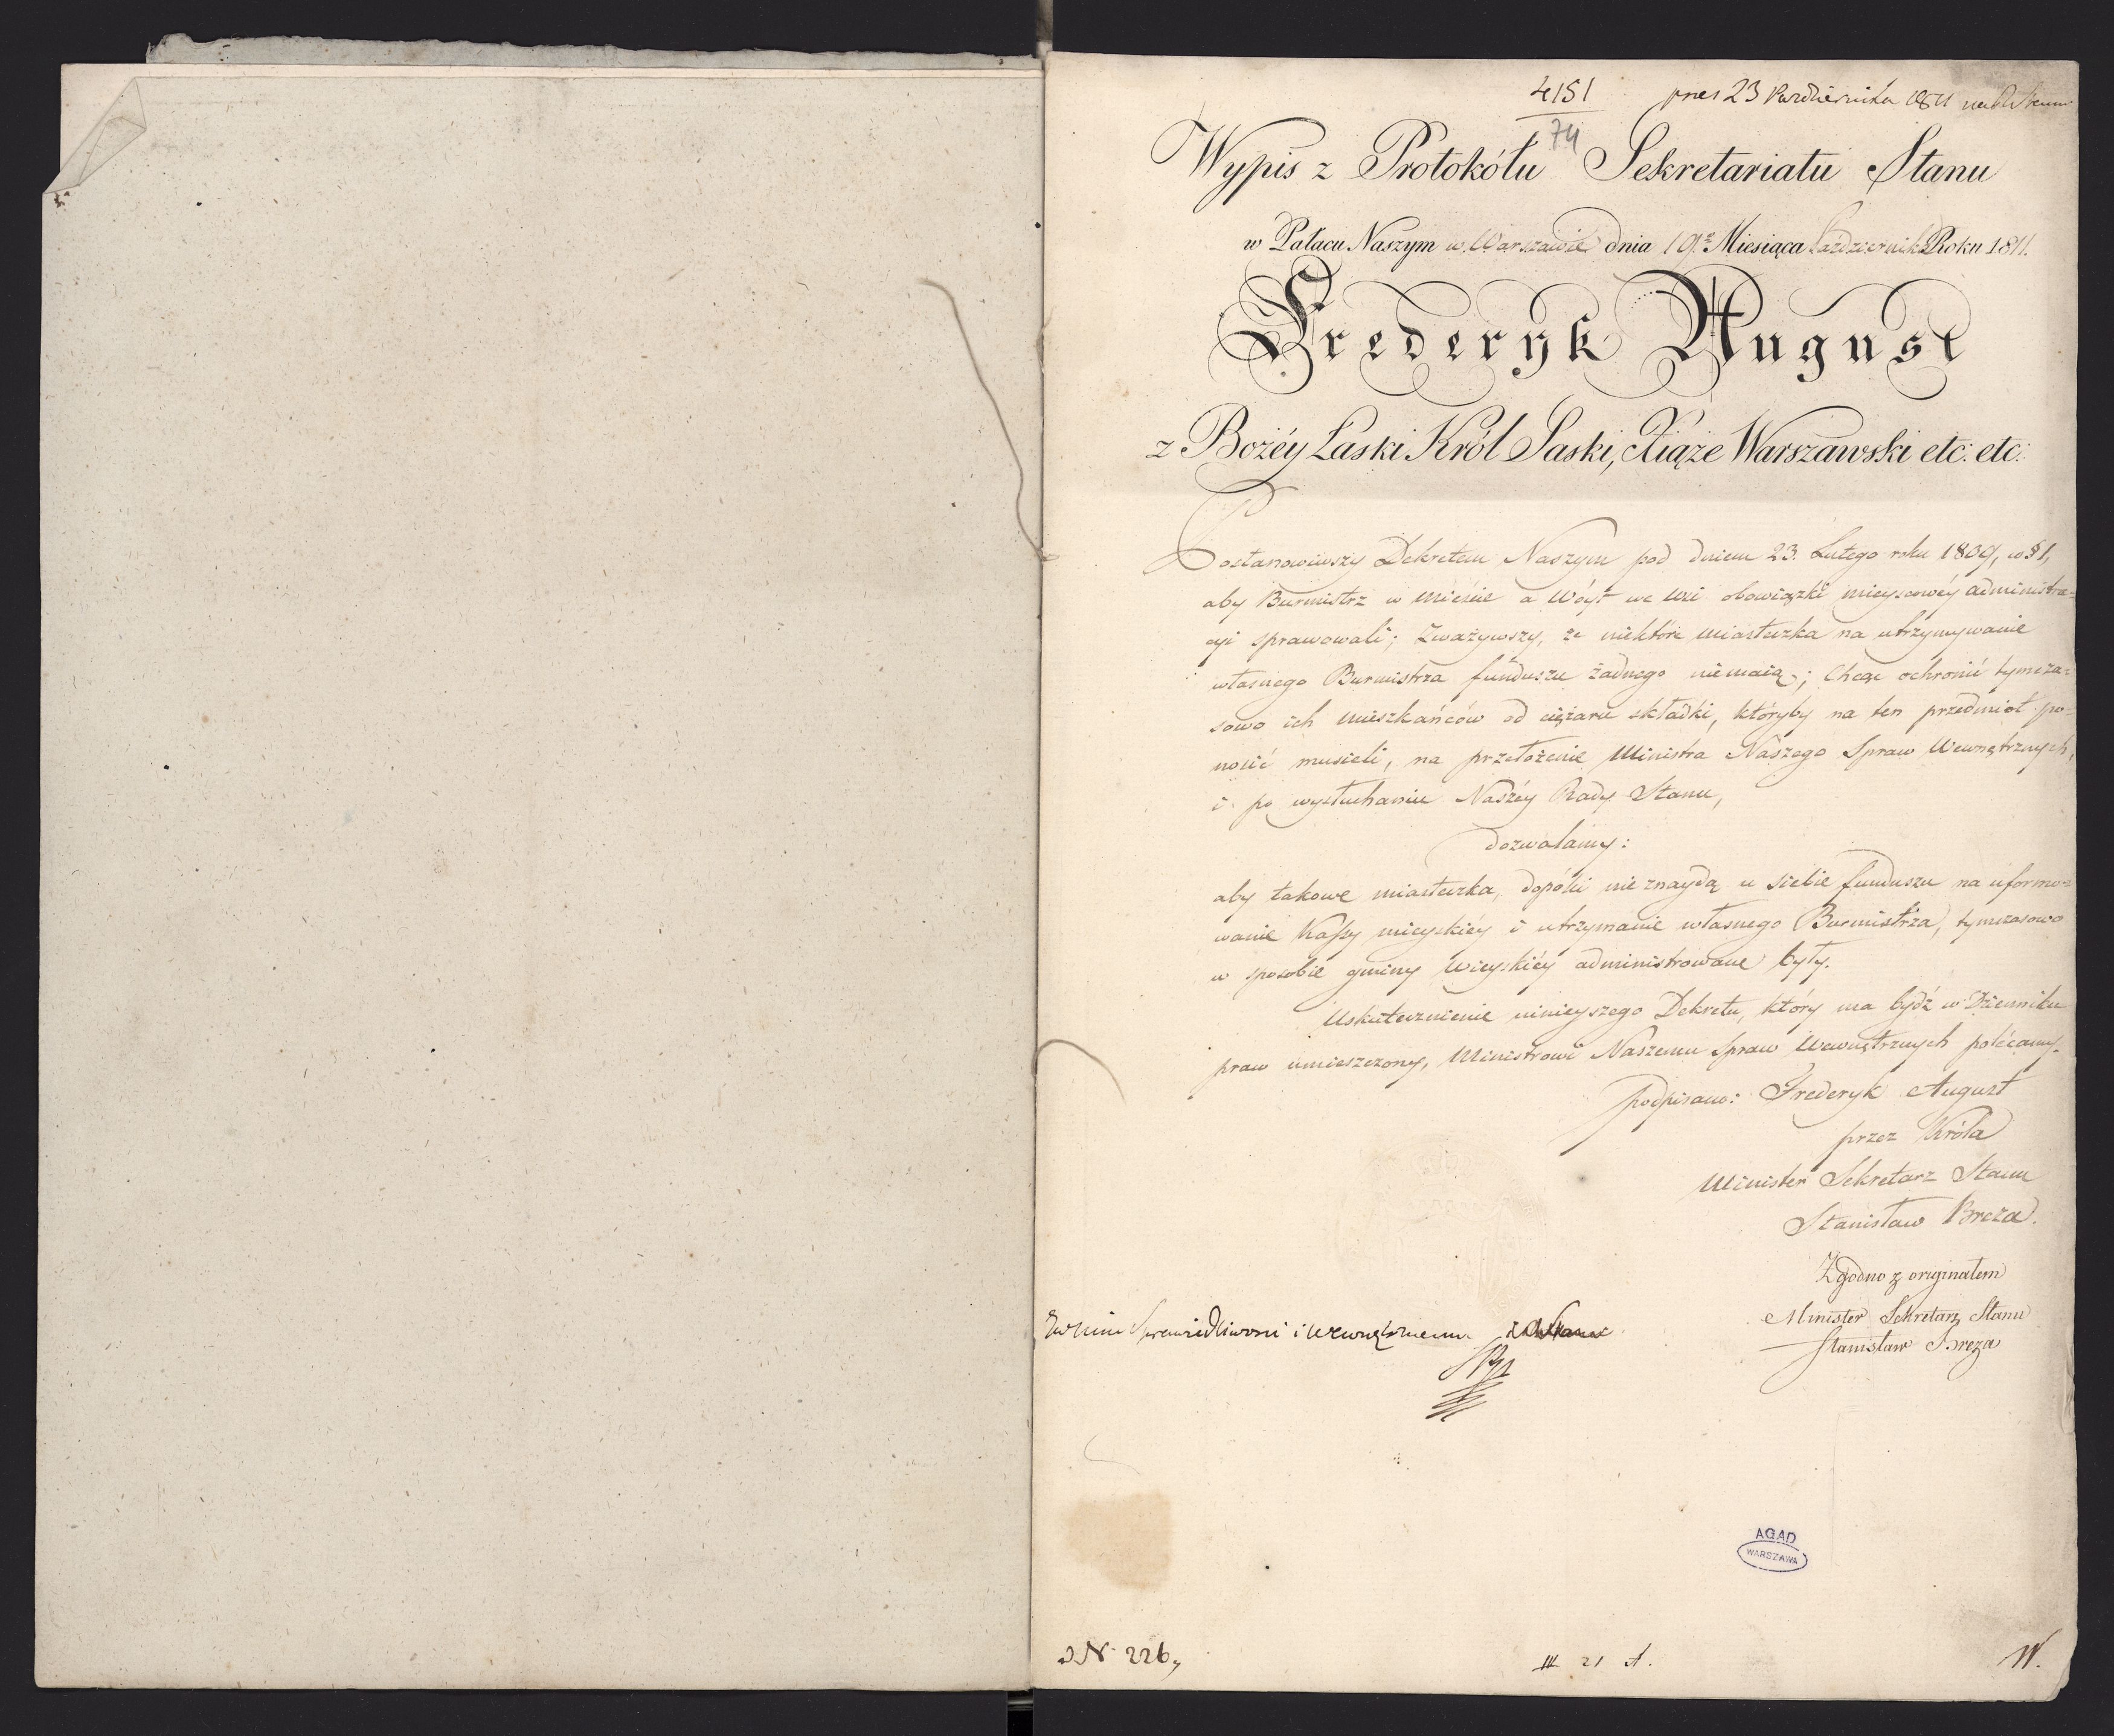 4151
74
pres 23 Października 1811
Wypis z Protokółu Sekretariatu Stanu
w Pałacu Naszym w Warszawie dnia 19. Miesiąca Października Roku 1811.
Frederyk August
z Bożéy Łaski Król Saski, Xiąże Warszawski etc: etc:
Postanowiwszy Dekretem Naszym pod dniem 23. Lutego roku 1809, w § 1,
aby Burmistrz w mieście a Wóyt we wsi obowiązki mieyscowéy administra=
cyi sprawowali; Zważywszy, że niektóre miasteczka na utrzymywanie
własnego Burmistrza funduszu żadnego nie maią; Chcąc ochronić tymcza=
sowo ich mieszkańców od ciężaru składki, któryby na ten przedmiot po=
nosić musieli, na przełożenie Ministra Naszego Spraw Wewnętrznych,
i po wysłuchaniu Naszéy Rady Stanu,
dozwalamy:
aby takowe miasteczka, dopóki nie znaydą u siebie funduszu na uformo=
wanie Kassy mieyskiéy i utrzymanie własnego Burmistrza, tymczasowo
w sposobie gminy wieyskiéy administrowane były.
Uskutecznienie ninieyszego Dekretu, który ma bydź w Dzienniku
praw umieszczony, Ministrowi Naszemu Spraw Wewnętrznych polécamy.
podpisano: Frederyk August
przez Króla
Minister Sekretarz Stanu
Stanisław Breza.
Zgodno z originałem
Minister Sekretarz Stanu
Stanisław Breza
Sprawiedliwości i Wewnętrznemu
AGAD
WARSZAWA
N 226,
III 21 A.
W.